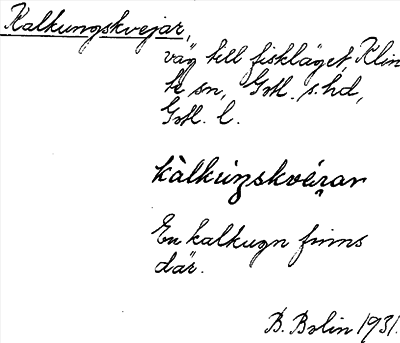 Kalkungskvejar,
väg till fiskläget, Klin
te sn, Gotl. s. hd,
Gotl. l.
kàlkúŋskvéi̯ar
En kalkugn finns
där.
B. Bolin 1931.